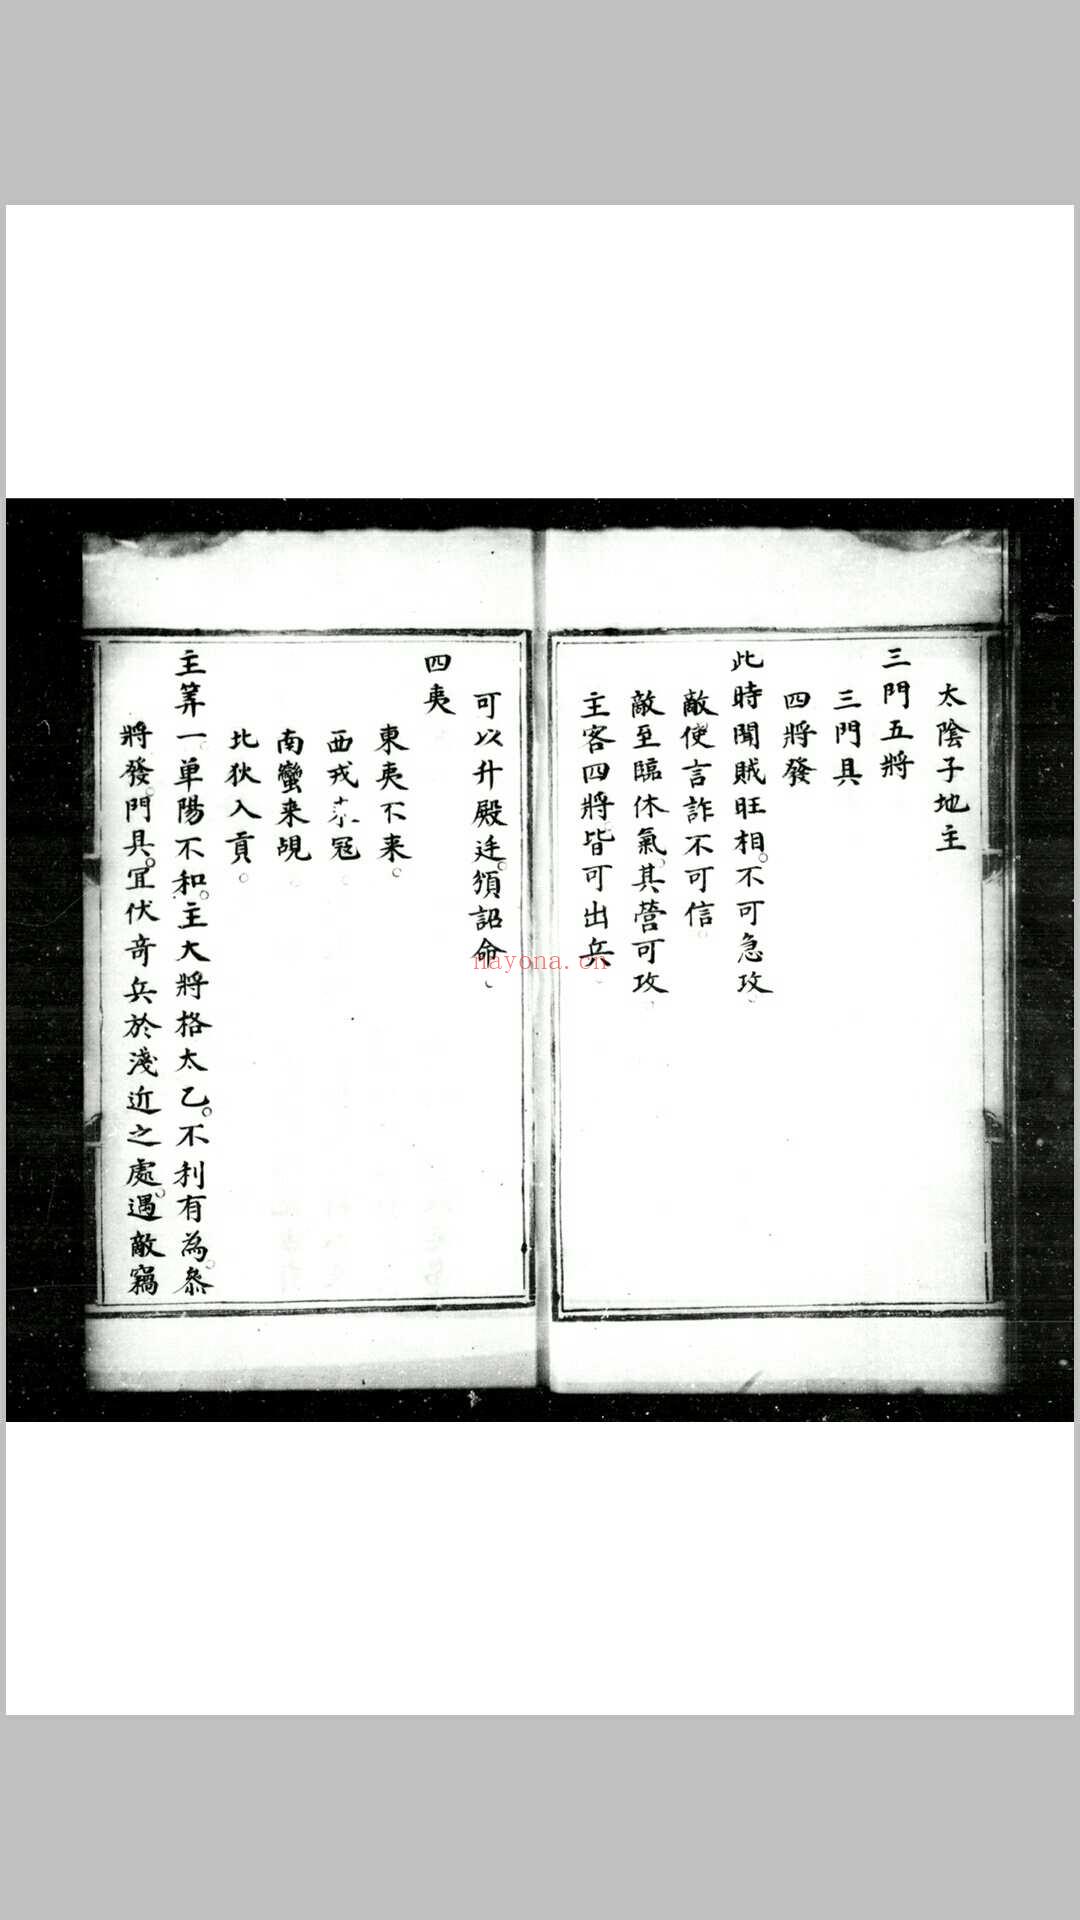 太陰子地主
三門五將
三門具
四將發
此時聞賊旺相。不可急攻。
敵使言詐不可信。
敵至臨休氣。其營可攻。
主客四將皆可出兵。
可以升殿廷。頒詔命。
四夷
東夷不来。
西戎 冦。
南蠻来覘。
北狄入貢。
主筭一。单陽不和。主大將格太乙。不利有為。叅
將發。門具。冝伏竒兵於淺近之處。遇敵竊
nayona.cn